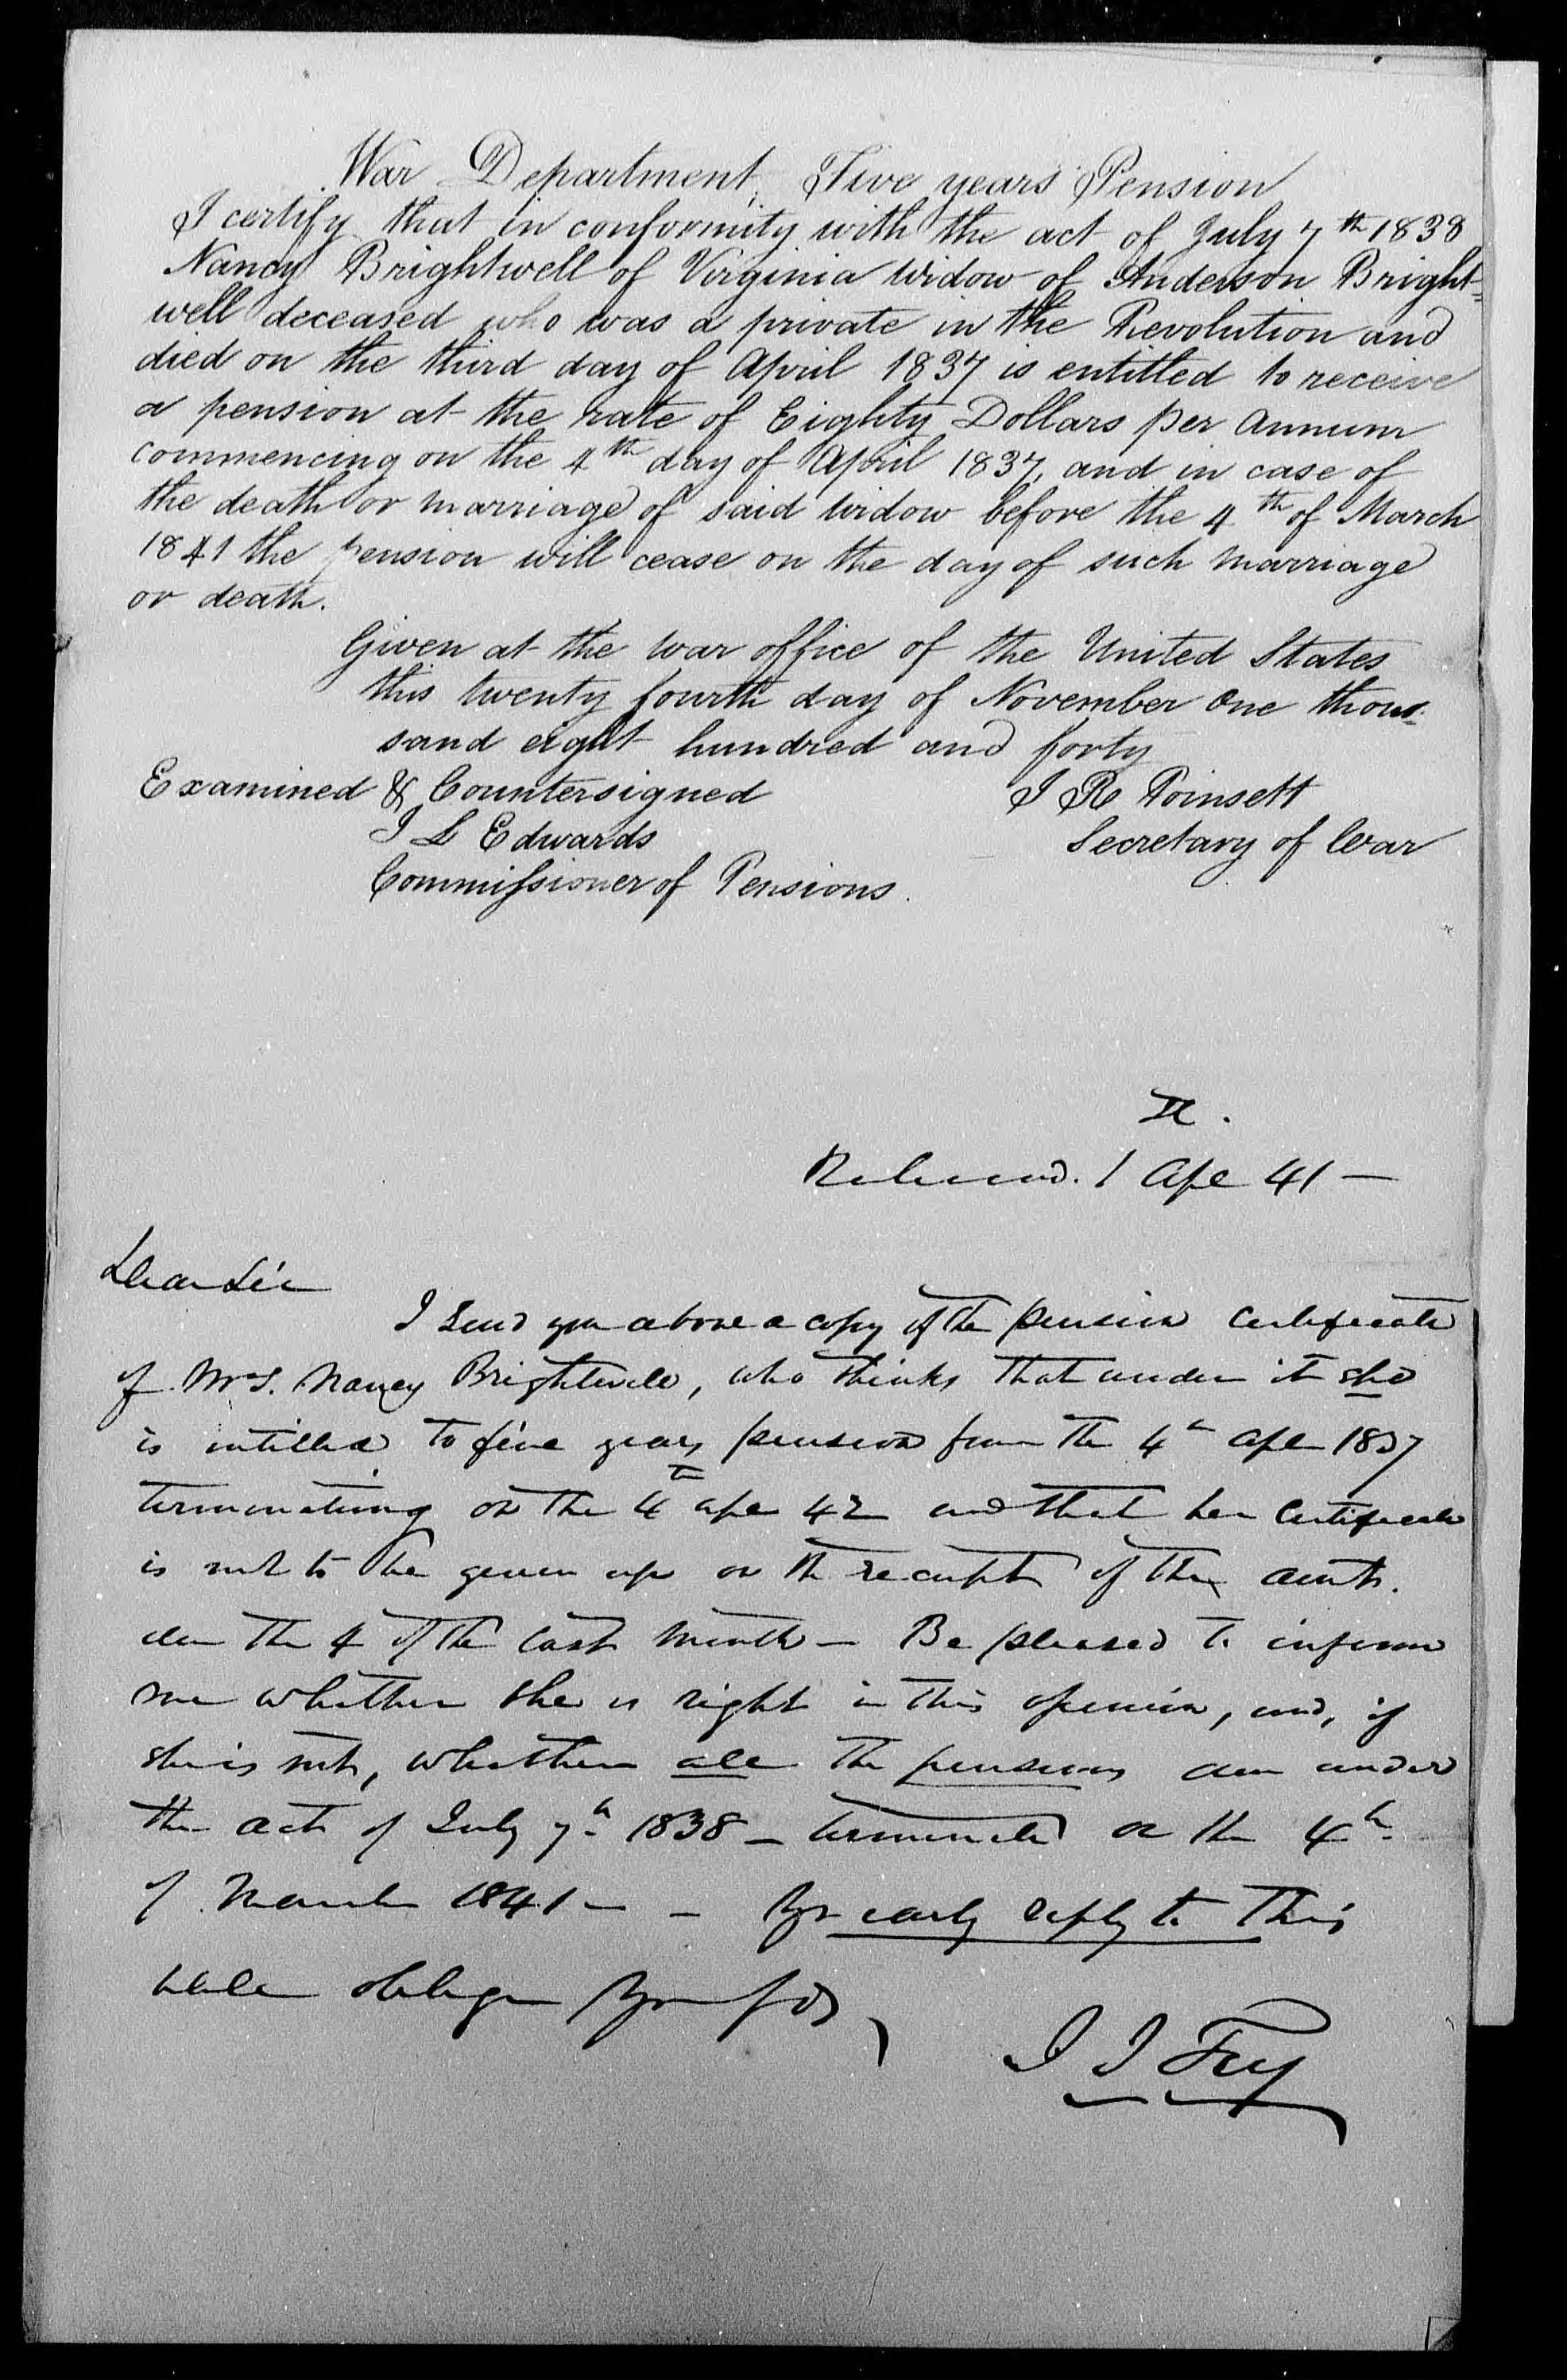 War Department, Five years Pension
I certify that in conformity with the act of July 7th 1838
Nancy Brightwell of Virginia Widow of Anderson Bright-
well deceased who was a private in the Revolution and
died on the third day of April 1837 is entitled to receive
a pension at the rate of Eighty Dollars per annum
commencing on the 4th day of April 1837, and in case of
the death or marriage of said widow before the 4th of March
1841 the pension will cease on the day of such marriage
or death.
Given at the war office of the United States
this twenty fourth day of November one thou-
sand eight hundred and forty
Examined & Countersigned
I R Poinsett
I L Edwards
Secretary of War
Commissioner of Pensions.
Richmond. 1 Ape 41 —
Dear Sir
I send you above a copy of the pension certificate
of Mrs. Nancy Brightwell, who thinks that under it she
is intitled to five years pension from the 4th ape 1837
terminating on the 4th ape 42 and that her certificate
is not to be given up on the receipt of the amt.
due the 4 of the last month — Be pleased to inform
me whether she is right in this opinion, and, if
she is not, whether all the pensions due under
the act of July 7th 1838 — terminate on the 4th
of March 1841 — — Yr early reply to this
will oblige Yr
I I Fry